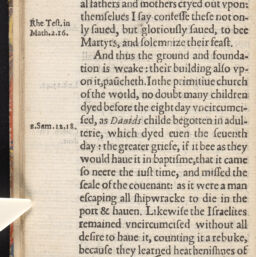 al fathers and mothers cryed out vpon:
themselues I say confesse these not on-
Rhe Test. in
ly saued, but gloriously saued, to bee
Math.2.16.
Martyrs, and solemnize their feast.
And thus the ground and founda-
tion is weake: their building also vp-
on it, paucheth. In the primitiue church
of the world, no doubt many children
dyed before the eight day vncircumci-
sed, as Dauids childe begotten in adul-
2.Sam.12.18.
terie, which dyed euen the seuenth
day: the greater griefe, if it bee as they
would haue it in baptisme, that it came
so neere the iust time, and missed the
seale of the couenant: as it were a man
escaping all shipwracke to die in the
port & hauen. Likewise the Israelites
remained vncircumcised without all
desire to haue it, counting it a rebuke,
because they learned heathenishnes of